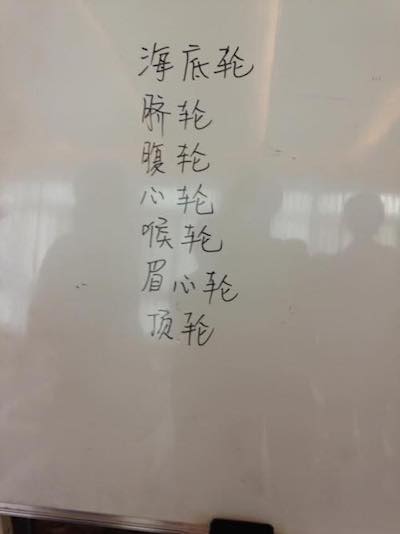 海底轮
脐轮
腹轮
心轮
喉轮
眉心轮
顶轮